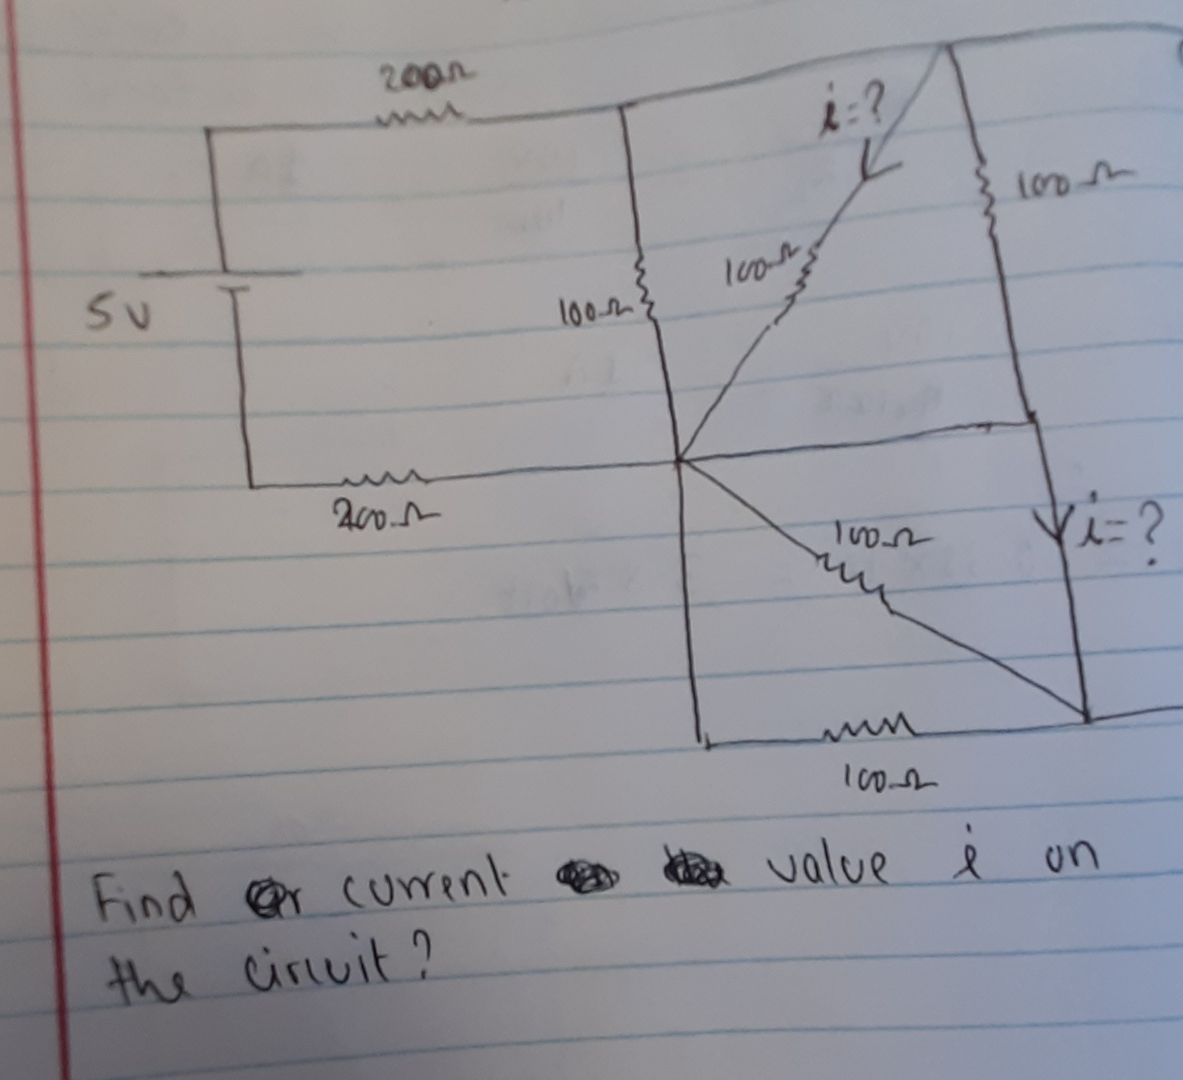 200Ω
i=?
100Ω
100Ω
5V
100Ω
200Ω
100Ω
i=?
100Ω
Find current value i on
the circuit?